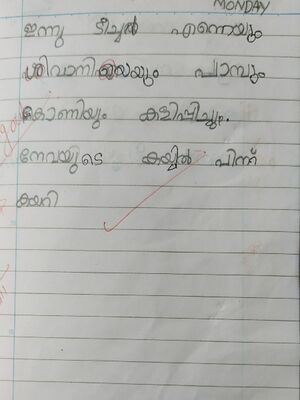 MONDAY
ഇന്നു ടീച്ചർ എന്നെയും
ശിവാനിയെയും പാമ്പും
കോണിയും കളിപ്പിച്ചു.
നേവയുടെ കയ്യിൽ പിന്ന്
കയറി